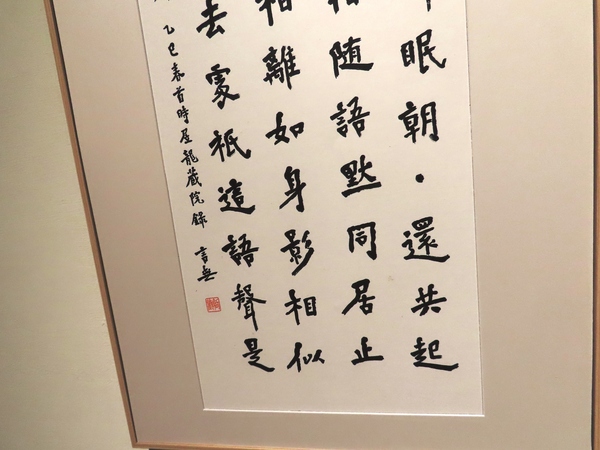 眠朝・還共起
相随語默同居止
相離如身影相似
去處祇這語聲是
乙巳春首時居龍藏院錄 言無